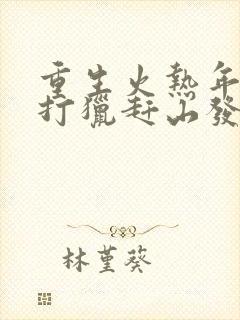 重生火熱年
打獵赶山發
林堇葵